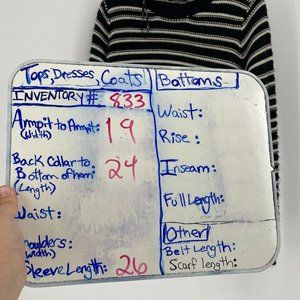 Tops, Dresses, Coats
INVENTORY #: 833
Armpit to Armpit: 19
(Width)
Back Collar to
Bottom of hem: 24
(Length)
Waist:
houlders:
(width)
Sleeve Length: 26
Bottoms
Waist:
Rise:
Inseam:
Full Length:
Other
Belt Length:
Scarf length: